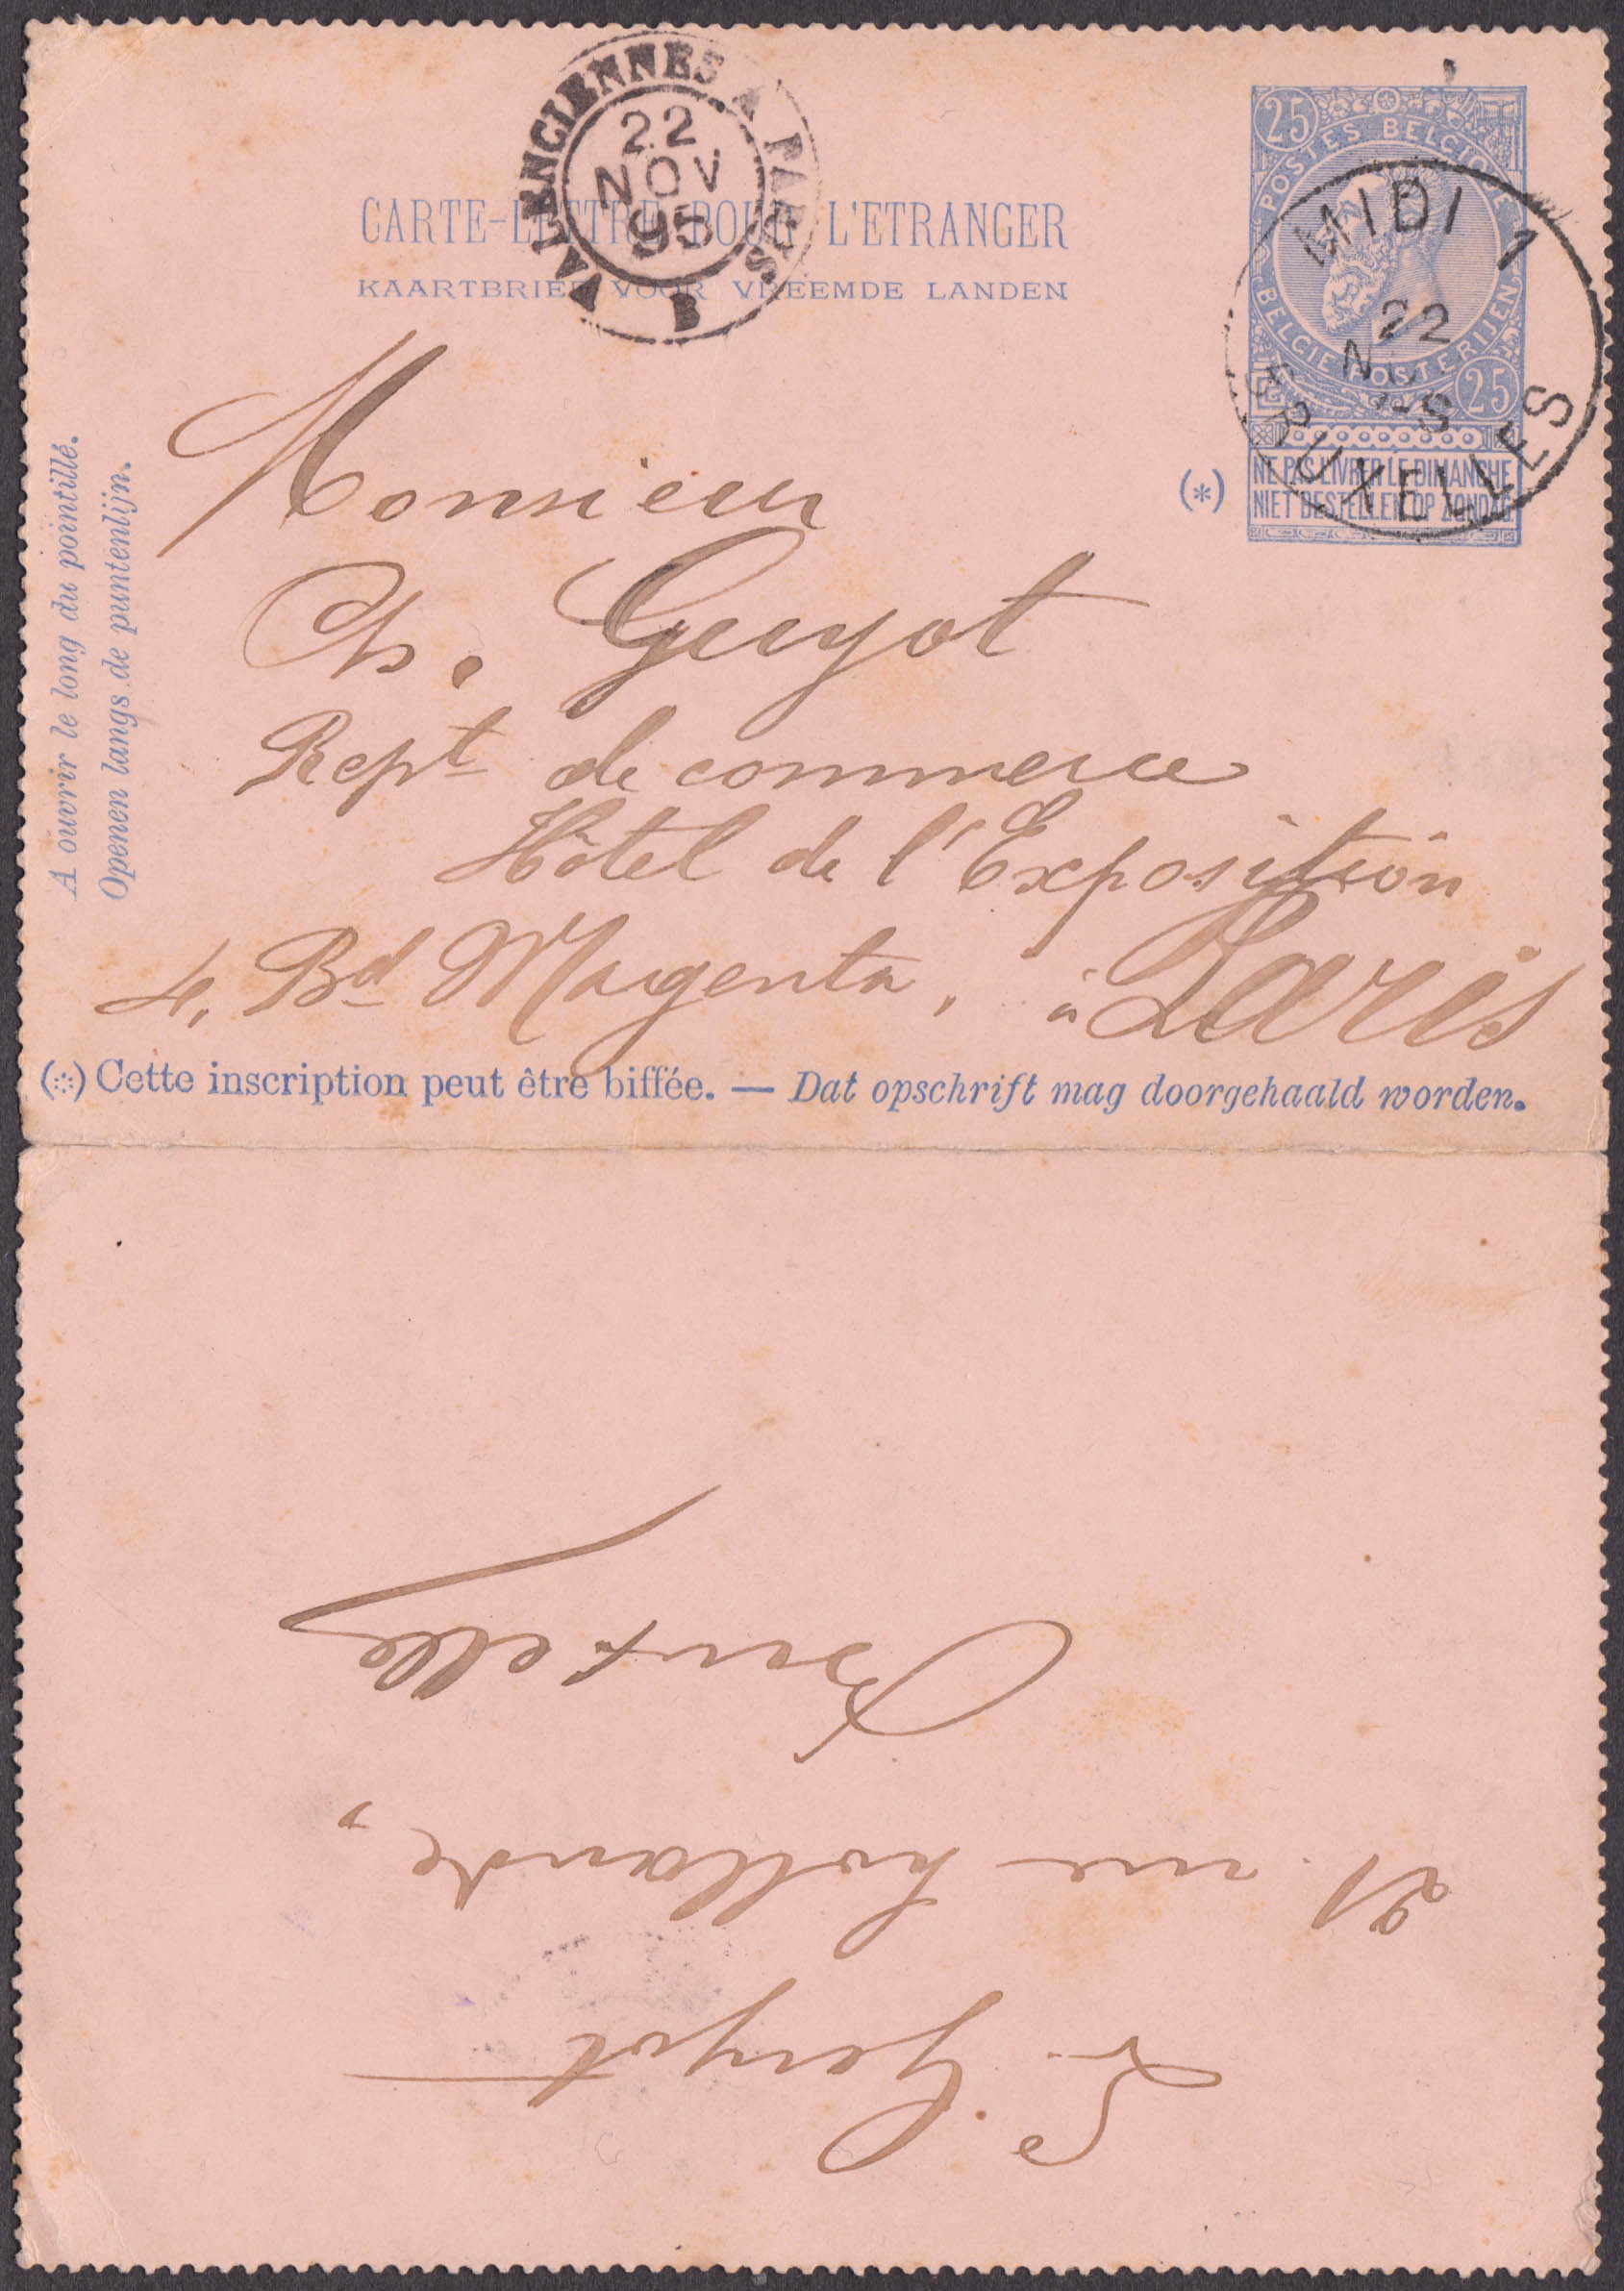 VALENCIENNES A PARIS
22
NOV
95
B
CARTE-LETTRE POUR L'ETRANGER
KAARTBRIEF VOOR VREEMDE LANDEN
25
POSTES BELGIQUE
BELGIE POSTERIJEN
25
NE PAS LIVRER LE DIMANCHE
NIET BESTELLEN OP ZONDAG
(*)
MIDI 1
22
BRUXELLES
A ouvrir le long du pointillé.
Openen langs de puntenlijn.
Monsieur
Ch. Guyot
Rept de commerce
Hôtel de l'Exposition
4, Bd Magenta, à Paris
(*) Cette inscription peut être biffée. — Dat opschrift mag doorgehaald worden.
L. Guyot
21 rue hollande,
Bruxelles